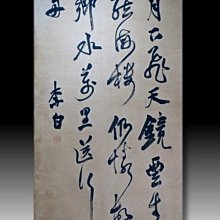 月下飛天鏡雲生
結海樓仍憐故
鄉水萬里送行
舟
李白